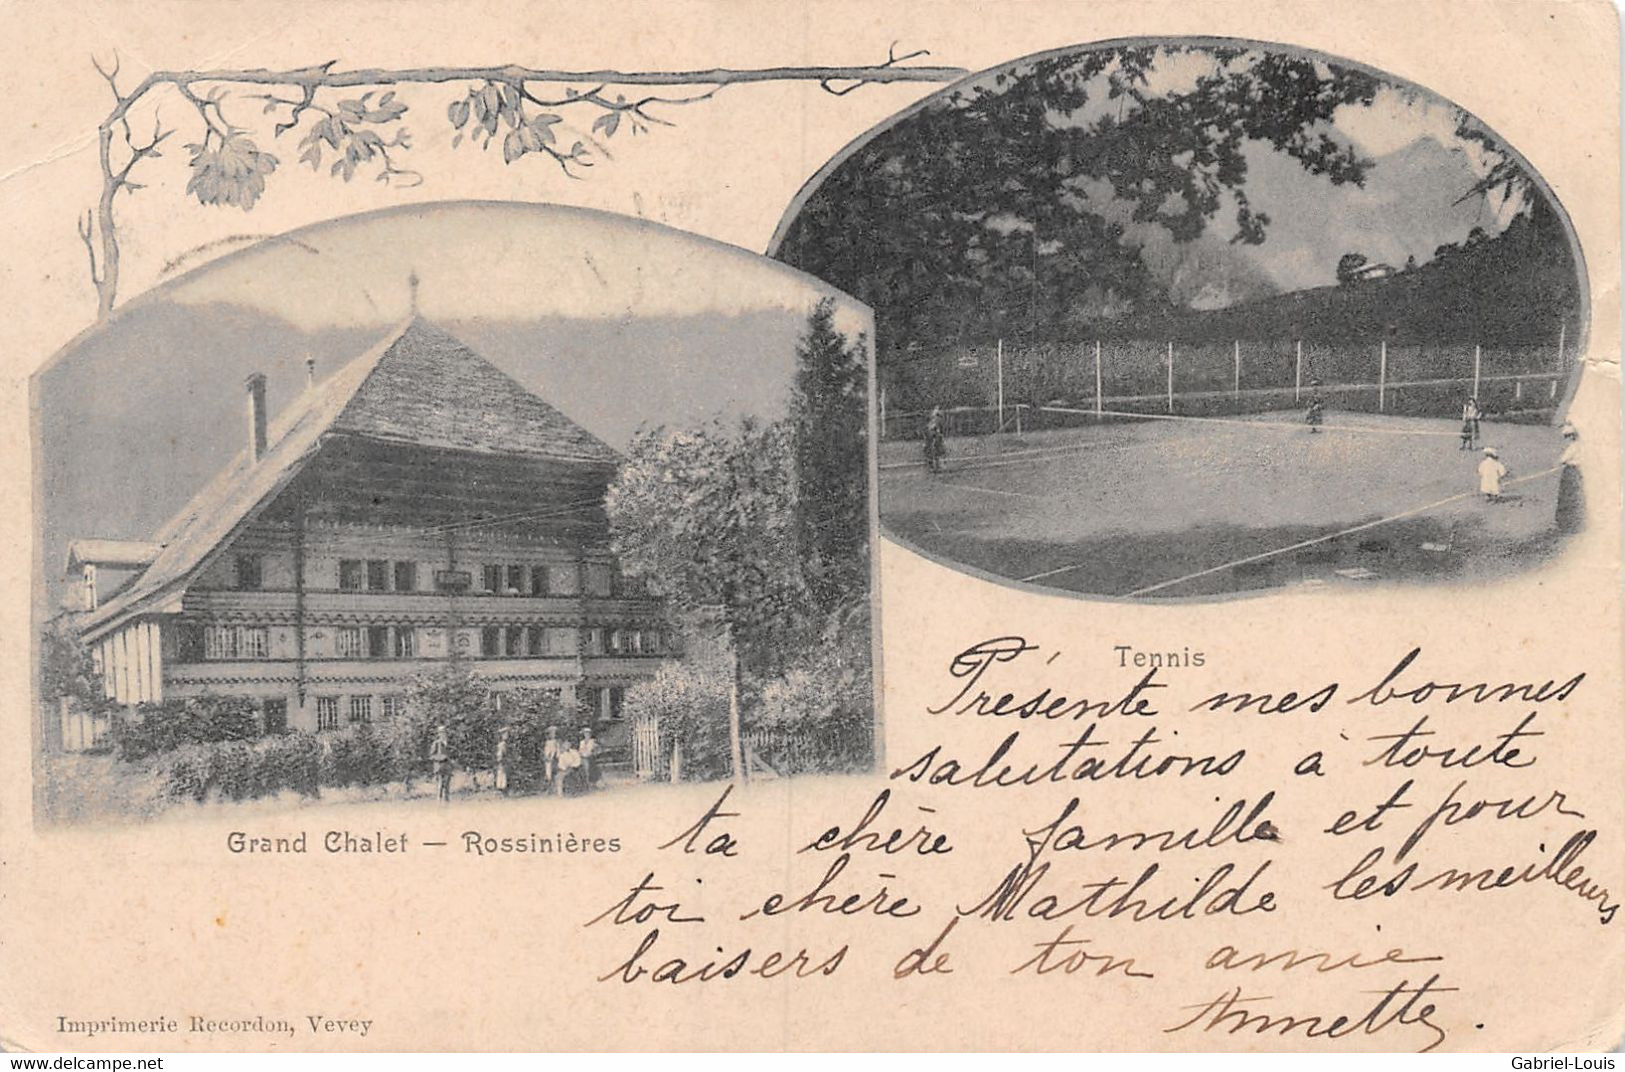 Tennis
Présente mes bonnes
salutations à toute
Grand Chalet — Rossinières
ta chère famille et pour
toi chère Mathilde les meilleurs
baisers de ton amie
Annette.
Imprimerie Recordon, Vevey
www.delcampe.net
Gabriel-Louis